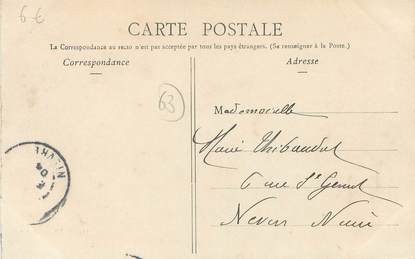 6€
CARTE POSTALE
La Correspondance au recto n'est pas acceptée par tous les pays étrangers. (Se renseigner à la Poste.)
Correspondance
Adresse
63
Mademoiselle
Marie Thibaudat
6 rue St Genest
Nevers Nièvre